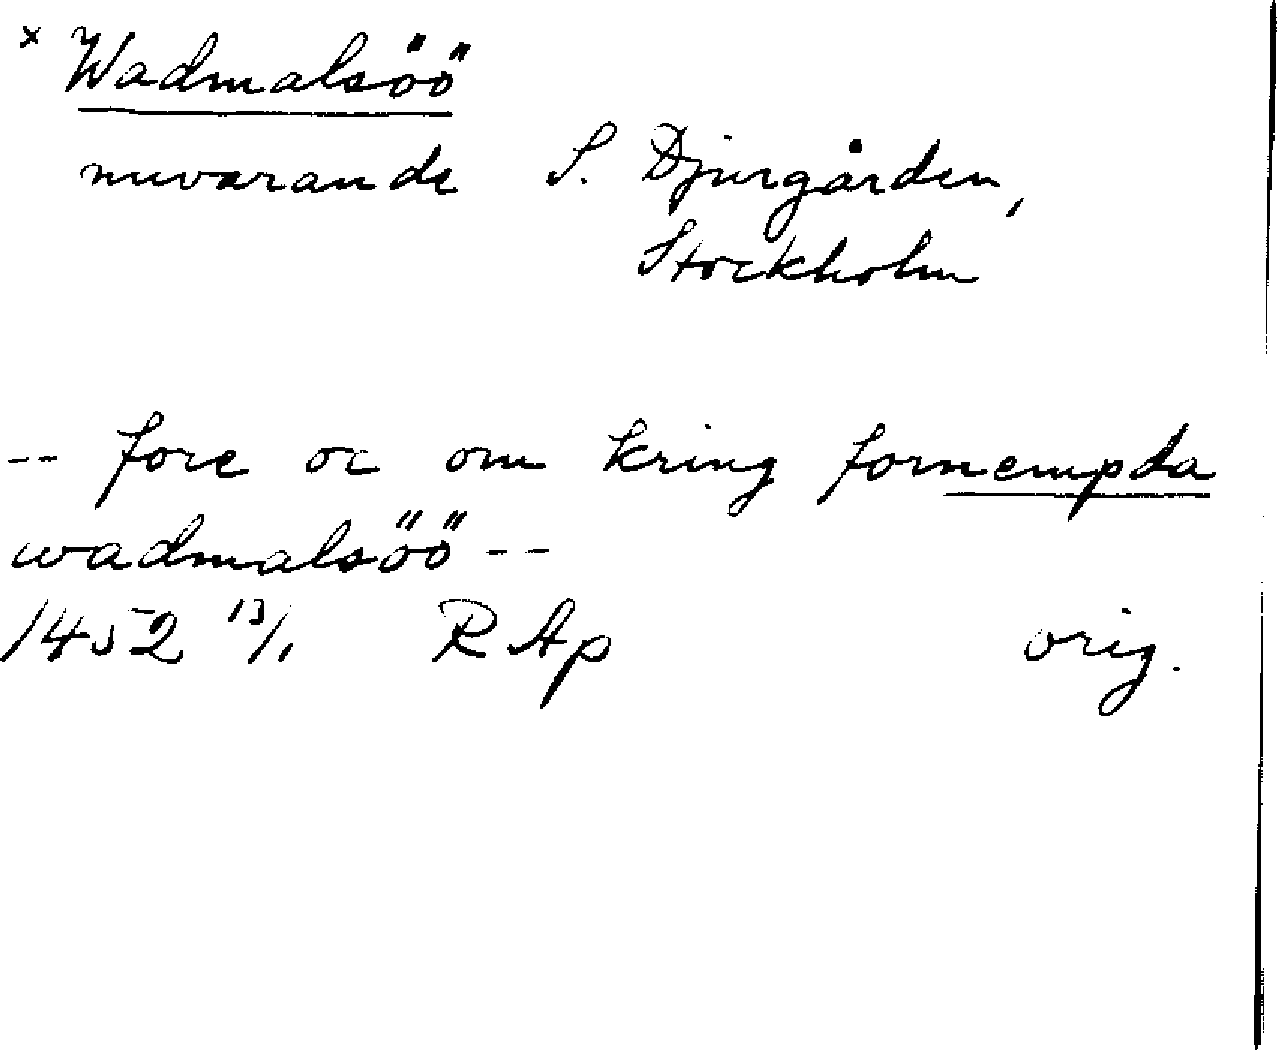 x Wadmalsöö
nuvarande S. Djurgården,
Stockholm
-- fore oc om kring fornempda
wadmalsöö --
1452 13/1 RAp orig.